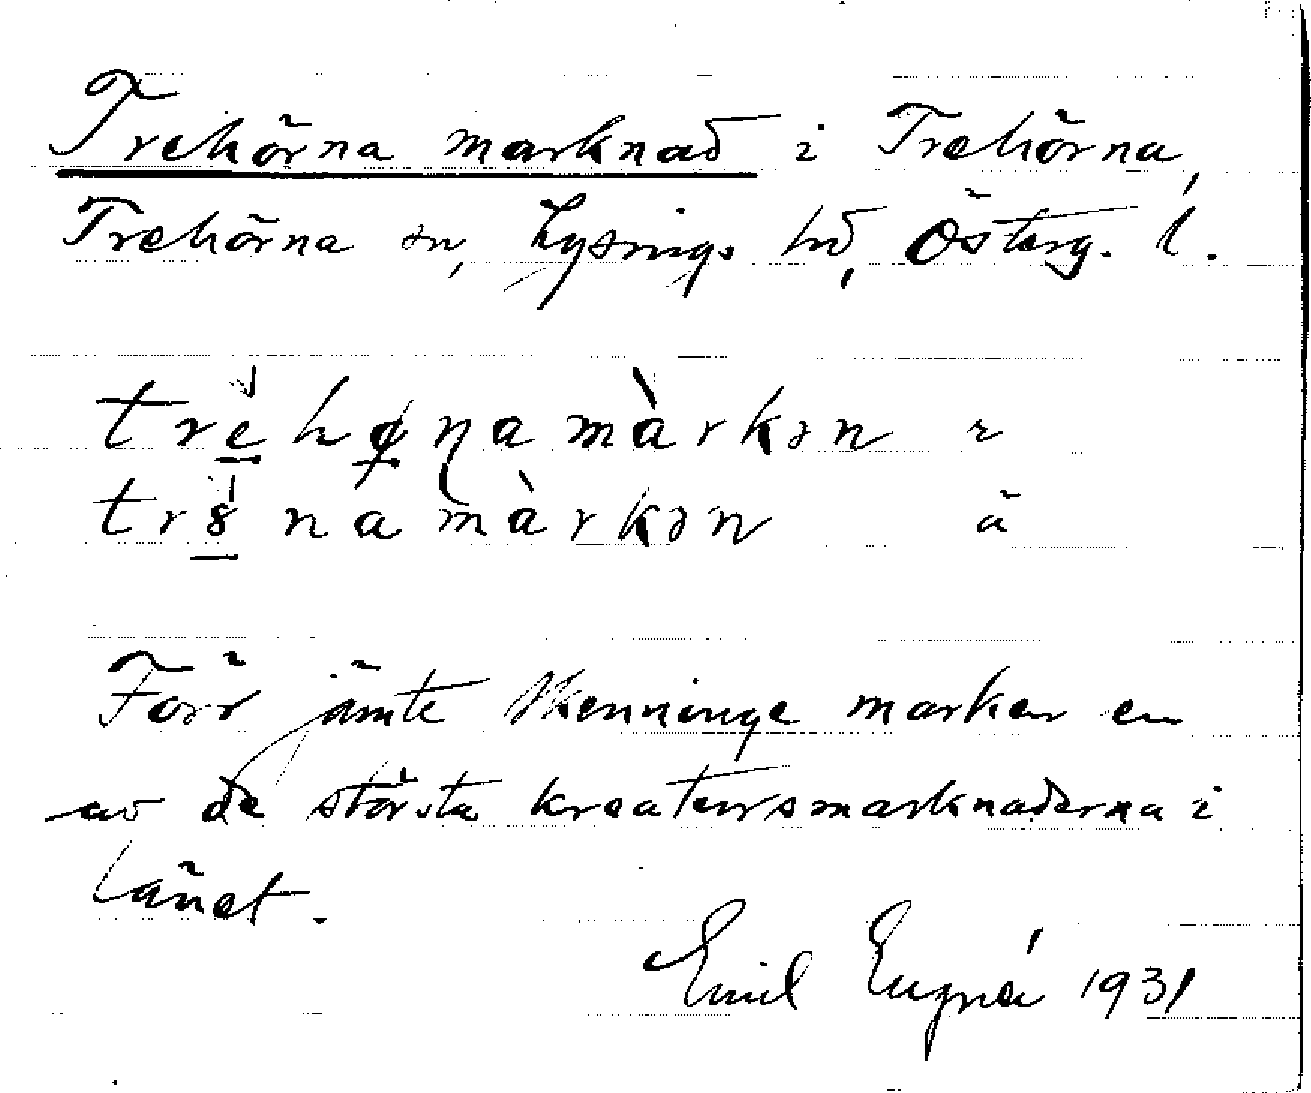 Trehörna marknad i Trehörna,
Trehörna sn, Lysings hd, Österg. l.
trèhø̨ŋamàrkən r
tr namàrkən ä
Förr jämte Skenninge marken en
av de största kreatursmarknaderna i
länet.
Emil 1931